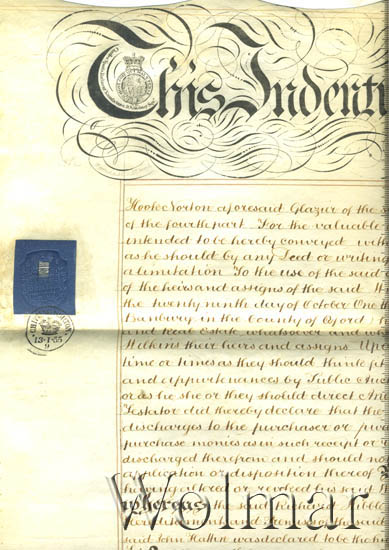 This Indentu
Hook Norton aforesaid Glazier of the
of the fourth part For the valuable
intended to be hereby conveyed with
as he should by any Deed or writing
a limitation To the use of the said
of the heirs and assigns of the said
the twenty ninth day of October One
Banbury in the County of Oxford
and Real Estate whatsoever and
Wilkins their heirs and assigns Upo
time or times as they should think fit
and appurtenances by Public Auc
or as he she or they should direct And
Testator did thereby declare that the
discharges to the purchaser or pur
purchase monies as in such receipt or
discharged therefrom and should no
application or disposition thereof
having altered or revoked his said
whereas the said Richard Hibble
Hereditaments and Premises
said John Hathn was declared to be the hi
13·1·55
9
Wolmar